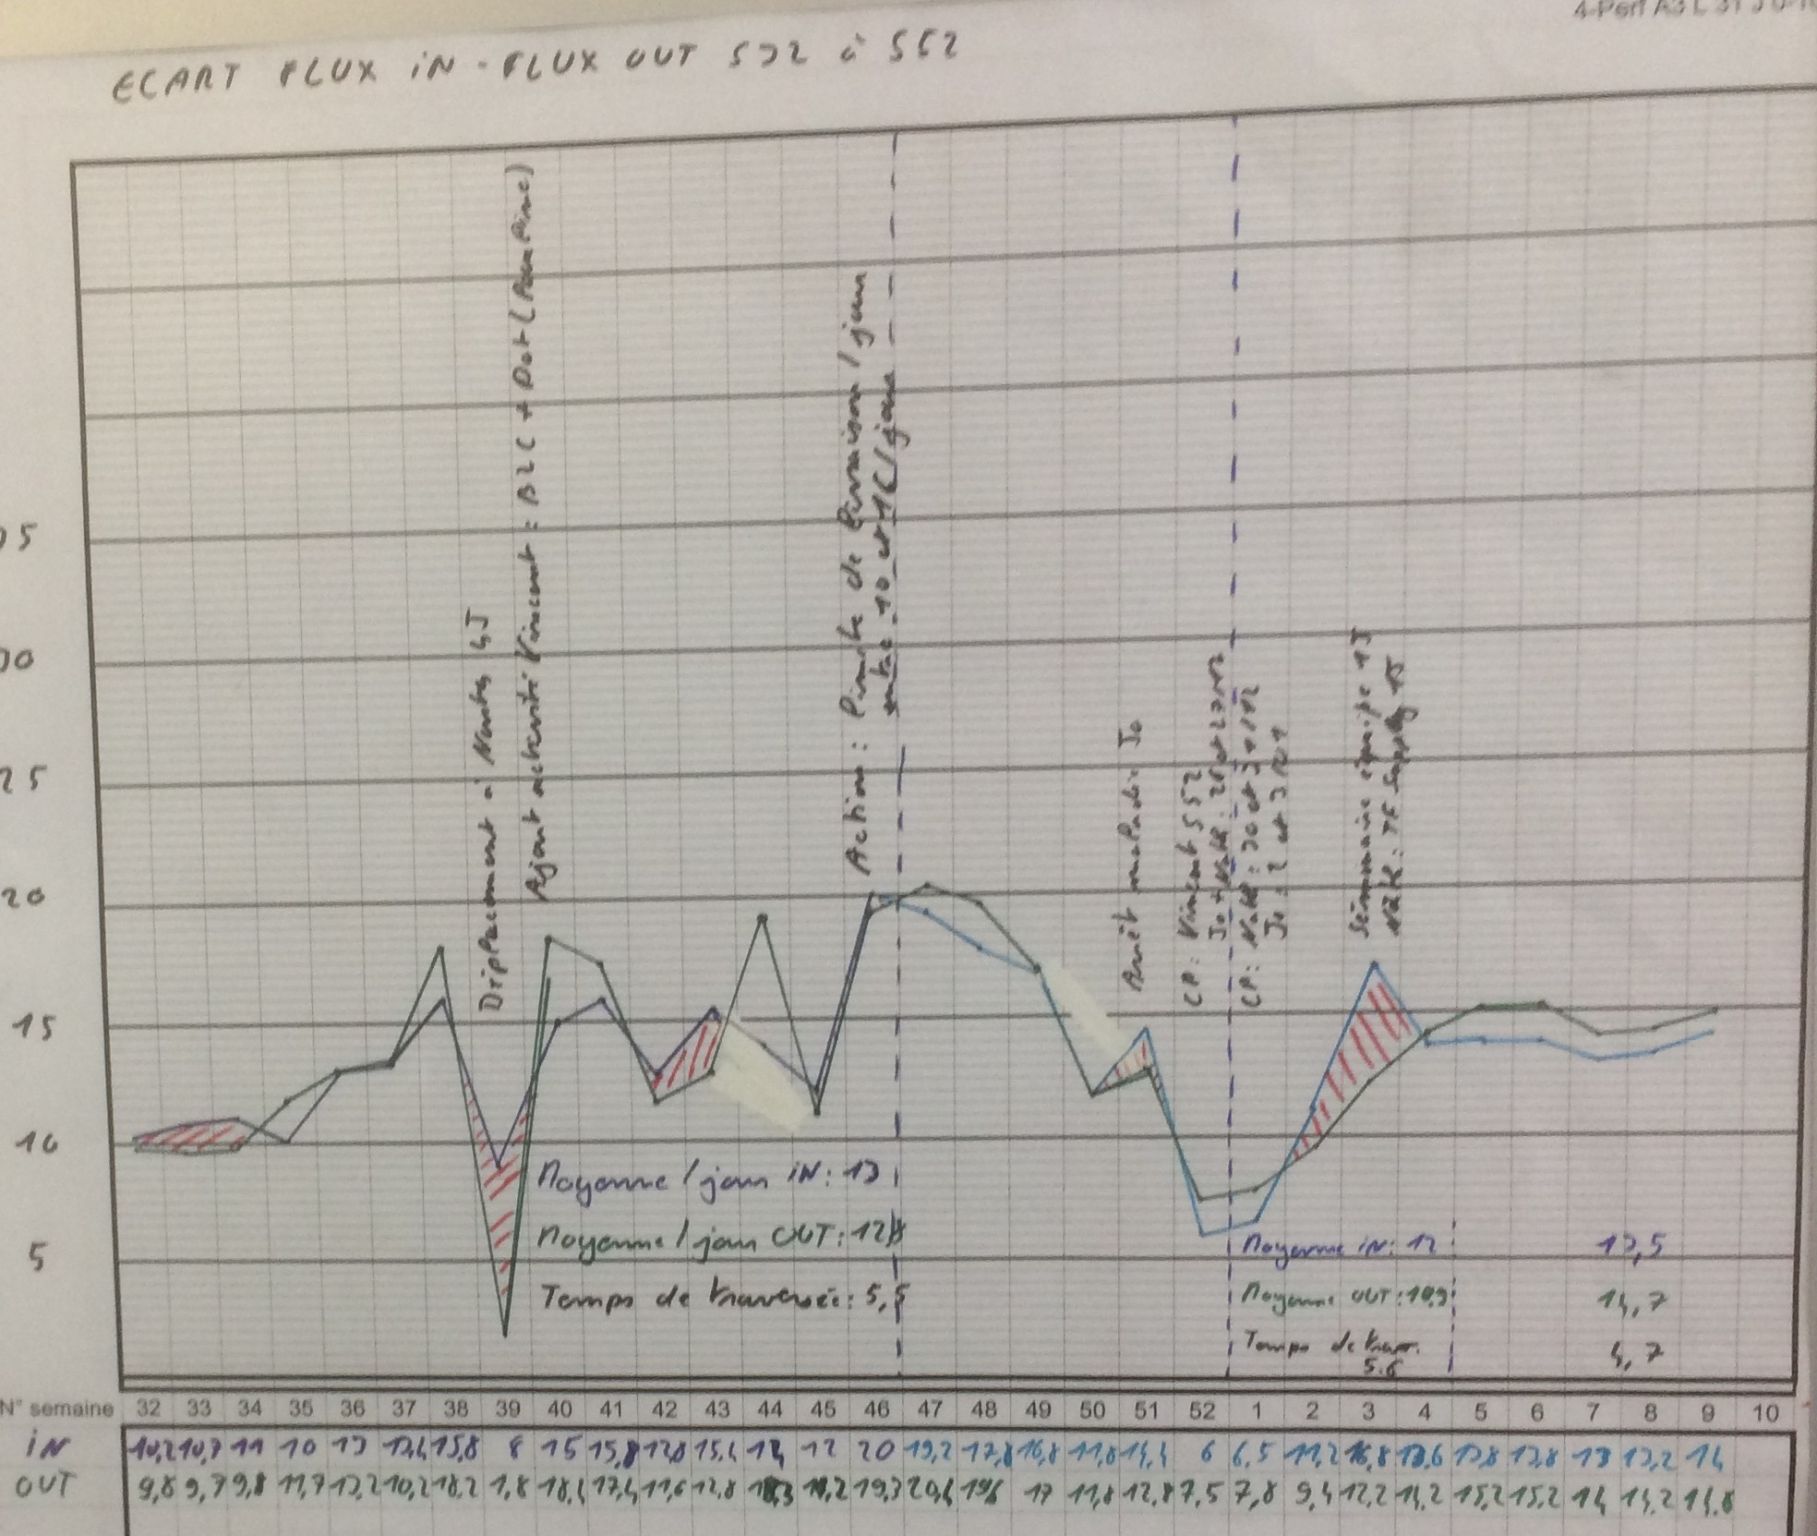 ECART FLUX IN - FLUX OUT S32 à S52
Déplacement à Nantes 4J
Ajout activité Vincent : B2C + Dot
Action : Pinute de livraison / jour
entre 10 et 16 / jour
Arrêt maladie Jo
CP : Vincent S52
CP :
Séminaire équipe 1J
25
20
15
10
5
Moyenne / jour IN : 13
Moyenne / jour OUT : 12,8
Temps de traversée : 5,5
Moyenne IN : 12
13,5
Moyenne OUT : 10,9
14,7
Temps de trav.
5.6
4,7
N° semaine 32 33 34 35 36 37 38 39 40 41 42 43 44 45 46 47 48 49 50 51 52 1 2 3 4 5 6 7 8 9 10
IN 10,2 10,7 11 10 13 13,4 15,8 8 15 15,8 12,8 15,4 14 12 20 19,2 17,8 16,8 11,8 14,4 6 6,5 11,2 16,8 13,6 13,8 13,8 13 13,2 14
OUT 9,8 9,7 9,8 11,7 13,2 18,2 1,8 18,4 17,4 11,6 12,8 11,2 19,3 20,4 19,6 17 11,8 12,8 7,5 7,8 9,4 12,2 14,2 15,2 15,2 14 14,2 14,8